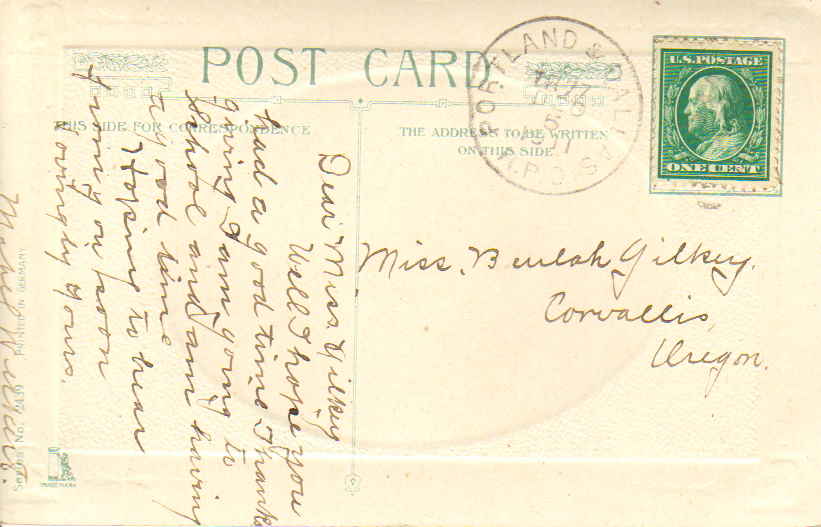 POST CARD
THIS SIDE FOR CORRESPONDENCE
THE ADDRESS TO BE WRITTEN
ON THIS SIDE
PORTLAND & DALLAS
R.P.O.
U.S. POSTAGE
ONE CENT
Miss. Beulah Gilkey.
Corvallis
Oregon.
Dear Miss Gilkey
Well I hope you
had a good time Thanks
giving I am going to
school and am having
a good time
Hoping to hear
from you soon
loving by yours.
PRINTED IN GERMANY